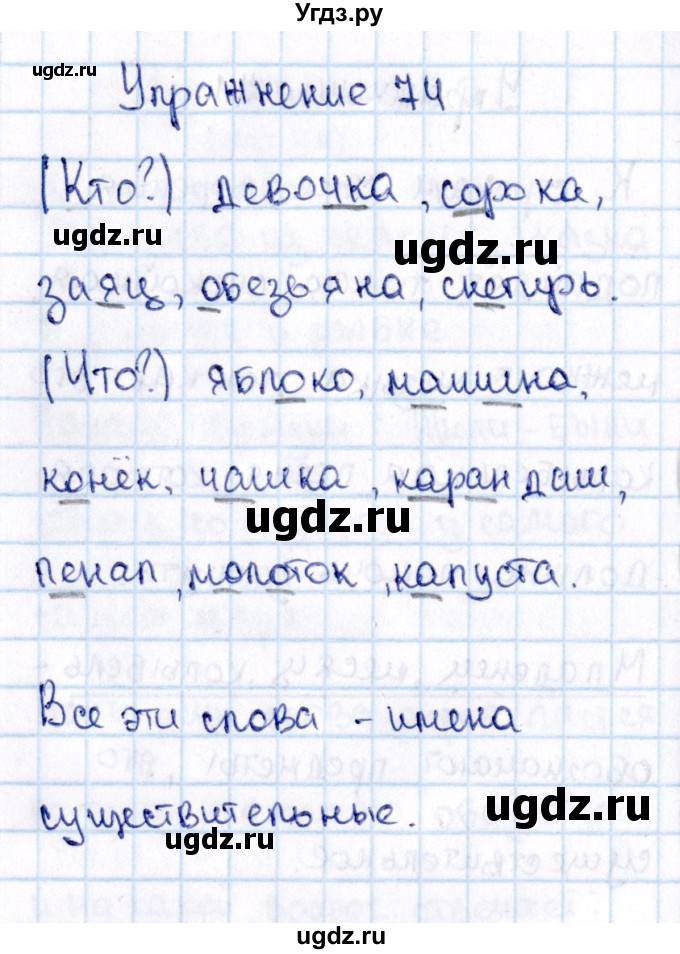 Угдз.ру
ugdz.ru
Упражнение 74
(Кто?) девочка, сорока,
ugdz.ru
ugdz.ru
заяц, обезьяна, снегирь.
(Что?) яблоко, машина,
конёк, чашка, карандаш,
ugdz.ru
пенал, молоток, капуста.
Все эти слова - имена
ugdz.ru
существительные.
ugdz.ru
ugdz.ru